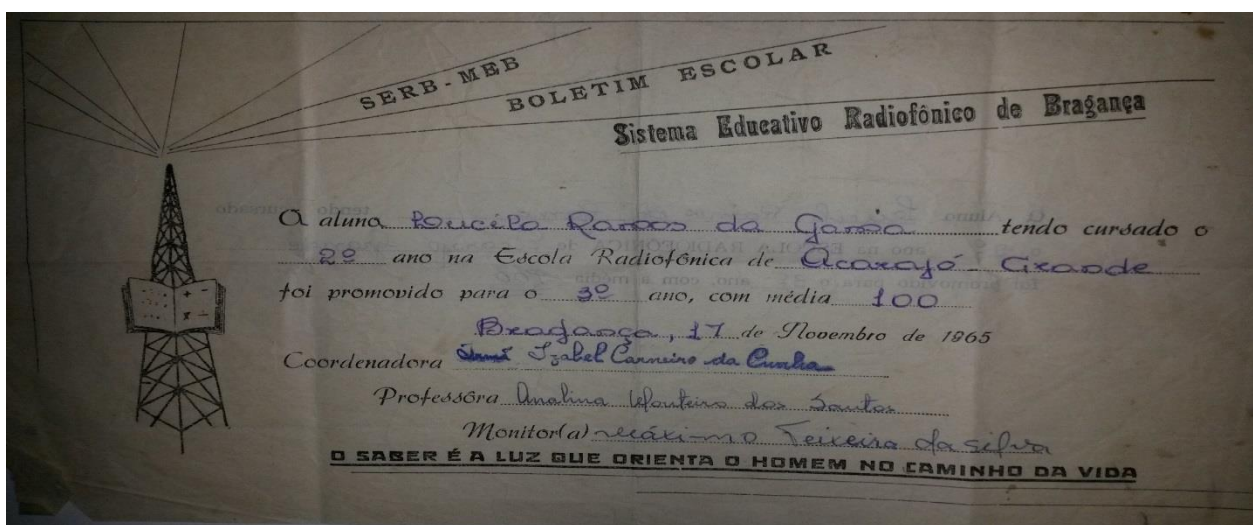 SERB - MEB
BOLETIM ESCOLAR
Sistema Educativo Radiofônico de Bragança
A aluna Loucila Ramos da Gama tendo cursado o
2º ano na Escola Radiofônica de Acarajó - Grande
foi promovido para o 3º ano, com média 100
Bragança, 17 de Novembro de 1965
Coordenadora Izabel Carneiro da Cunha
Professôra Analina Monteiro dos Santos
Monitor(a) Máximo Teixeira da Silva
O SABER É A LUZ QUE ORIENTA O HOMEM NO CAMINHO DA VIDA